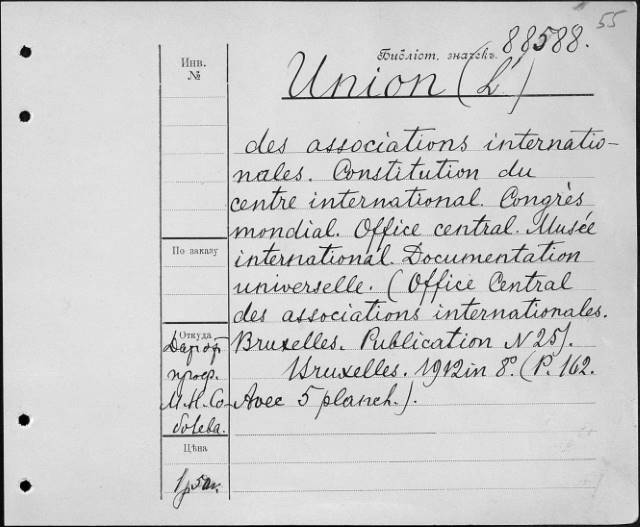 55
Библіот. значекъ. 88588.
Union (L')
des associations internatio-
nales. Constitution du
centre international. Congrès
mondial. Office central. Musée
international. Documentation
universelle. (Office Central
des associations internationales.
Bruxelles. Publication N 25).
Bruxelles. 1912 in 8º. (P. 162.
Avec 5 planch.).
Инв.
№
По заказу
Откуда
Даръ
проф.
М.Н. Со-
болева.
Цѣна